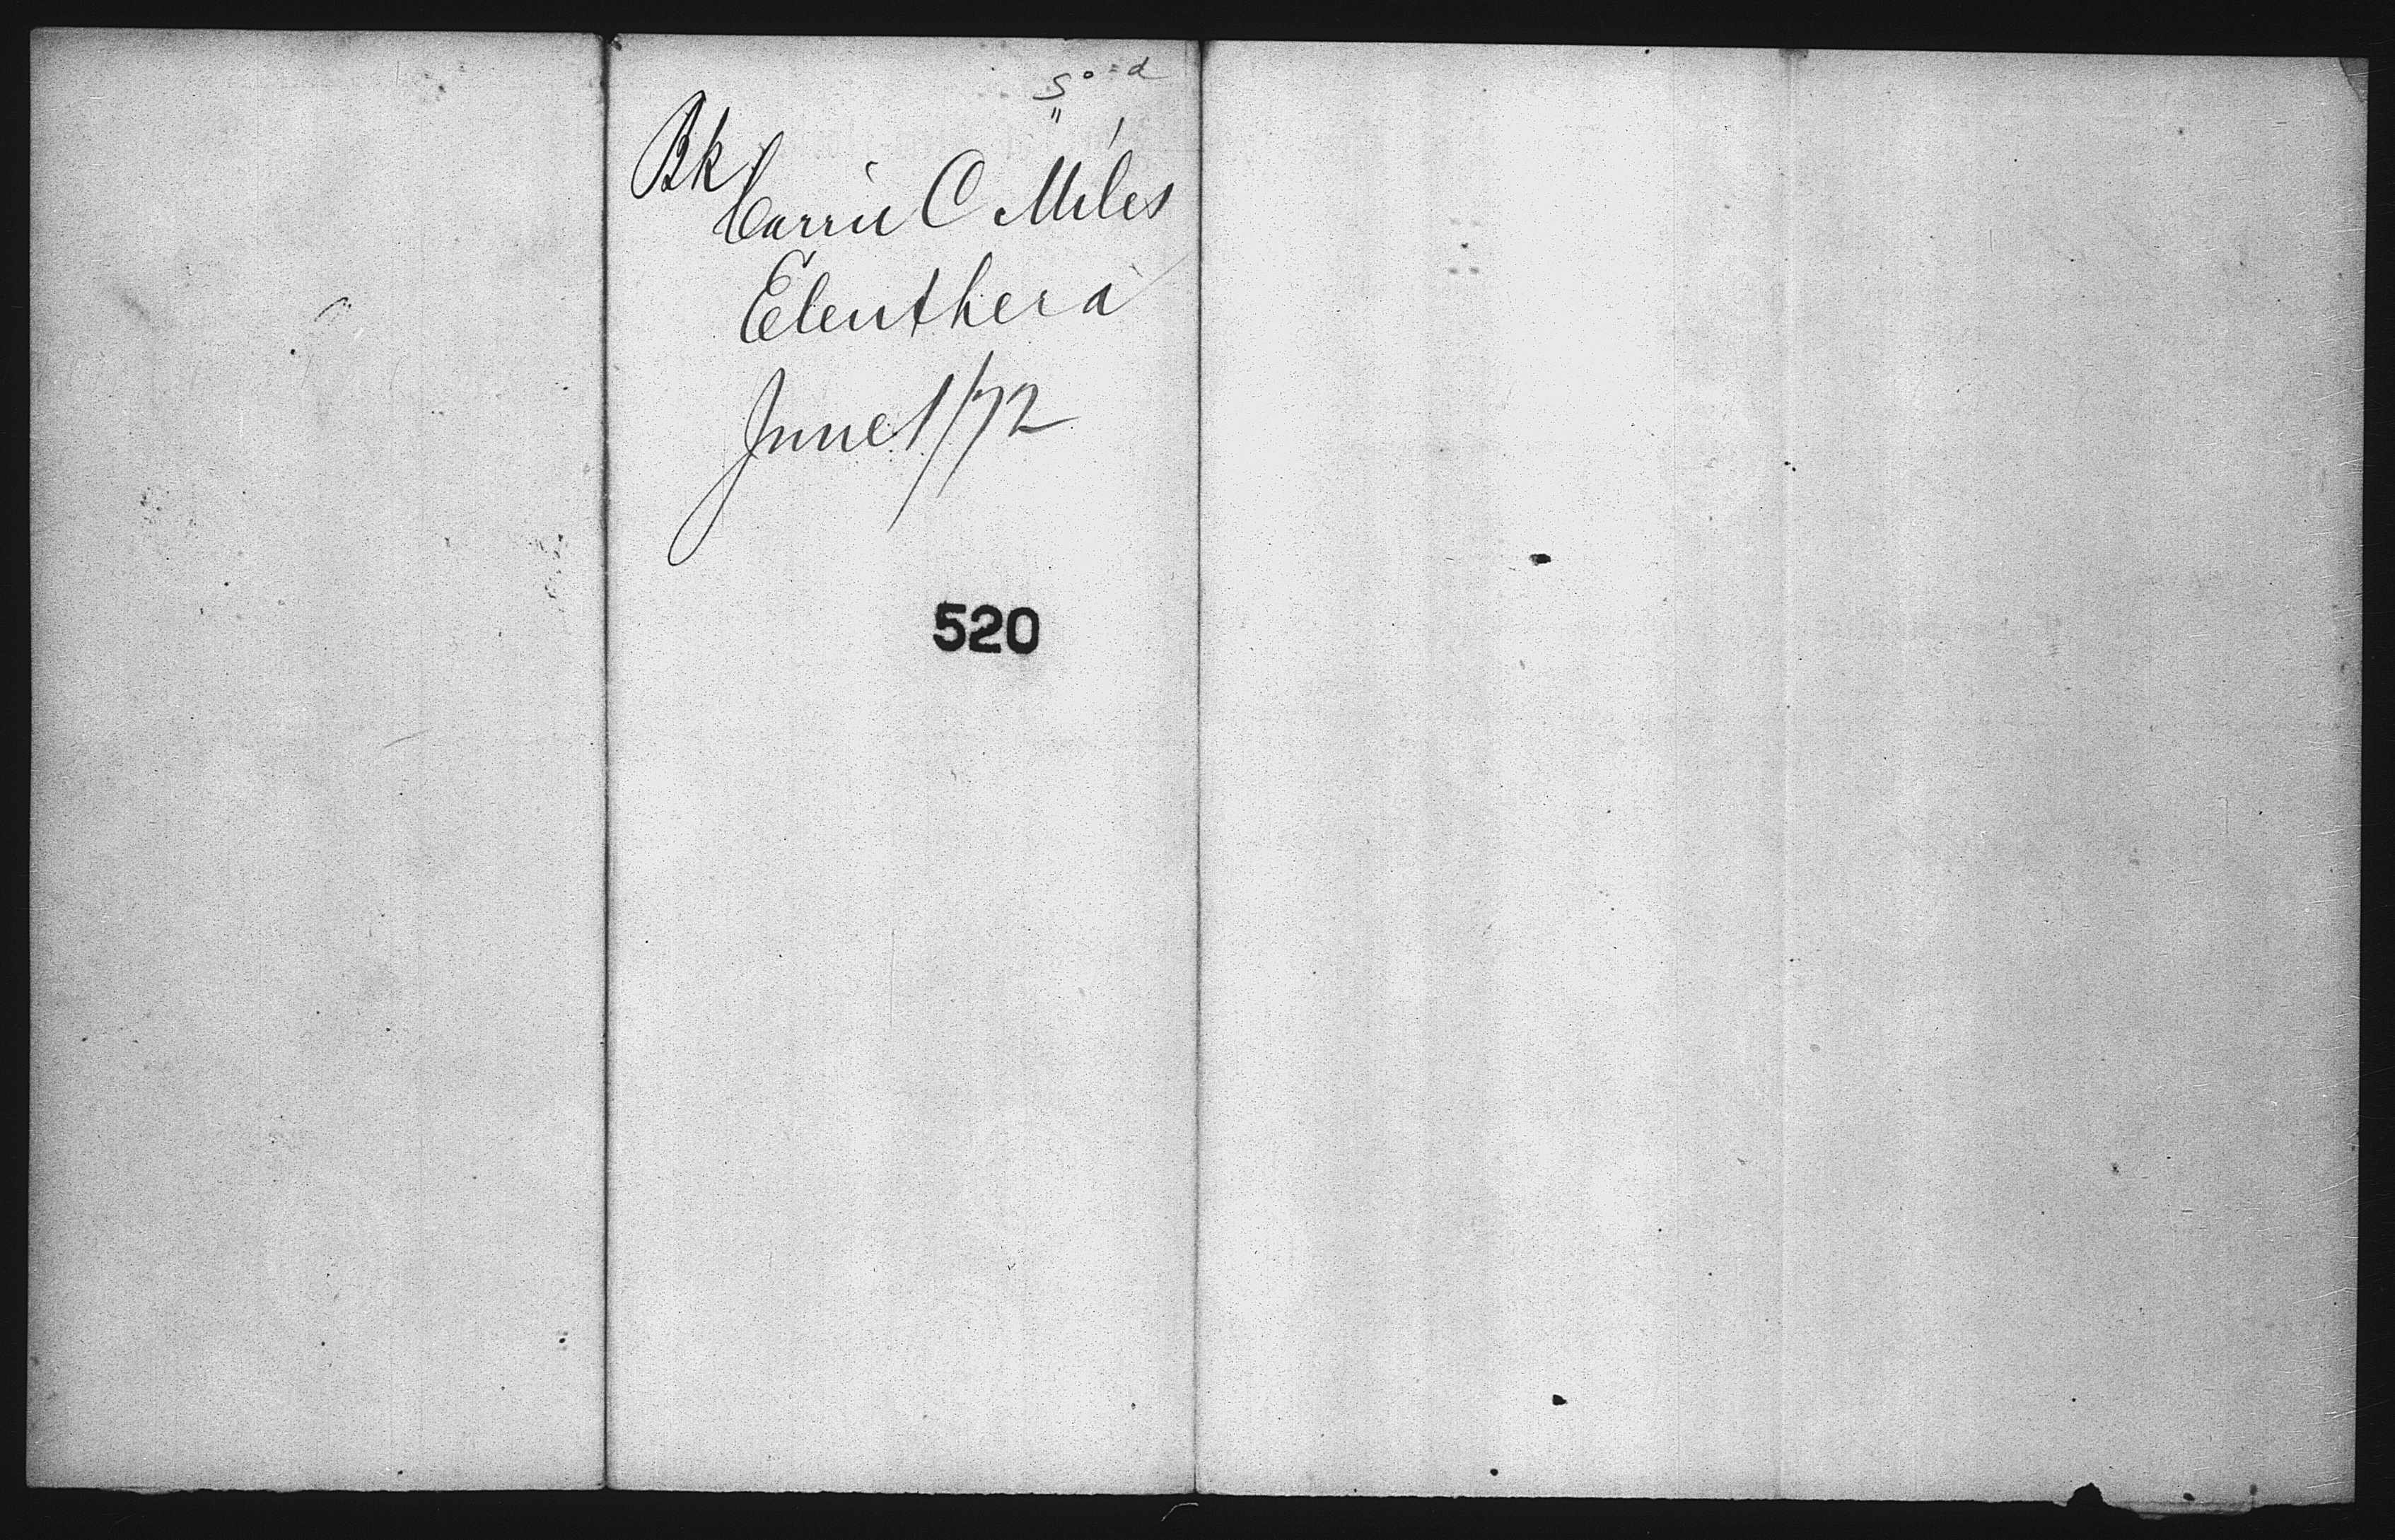 Bk
Carrie C Miles
Eleuthera
June 1/72
520